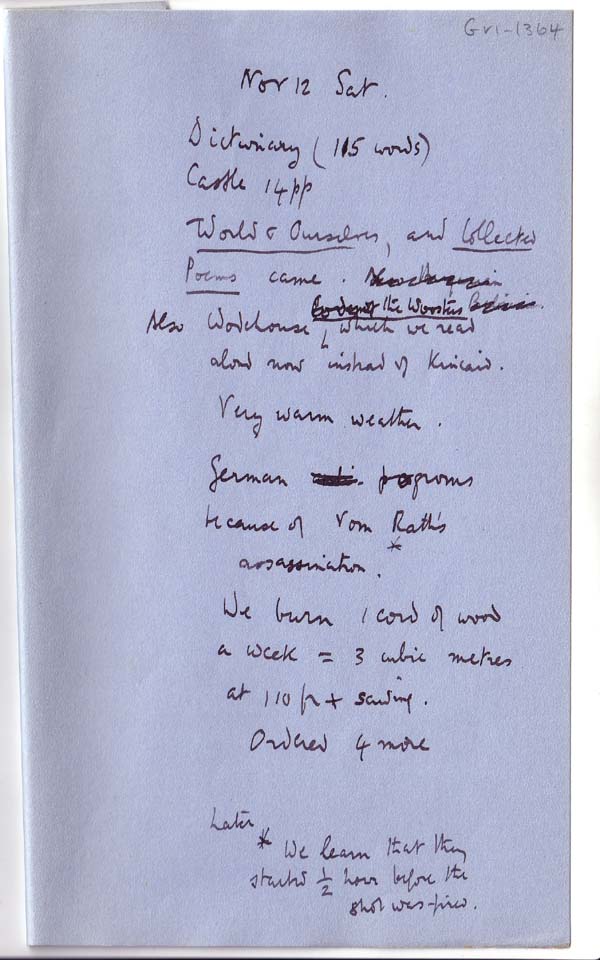 Gr1-1364
Nov 12 Sat.
Dictionary (115 words)
Castle 14pp
World & Ourselves, and Collected
Poems came.
Code of the Woosters
Also Wodehouse which we read
aloud now instead of Kincaid.
Very warm weather.
German pogroms
because of Vom Rath's
*
assassination.
We burn 1 cord of wood
a week = 3 cubic metres
at 110 fr + sawing.
Ordered 4 more
Later
* We learn that they
started ½ hour before the
shot was fired.